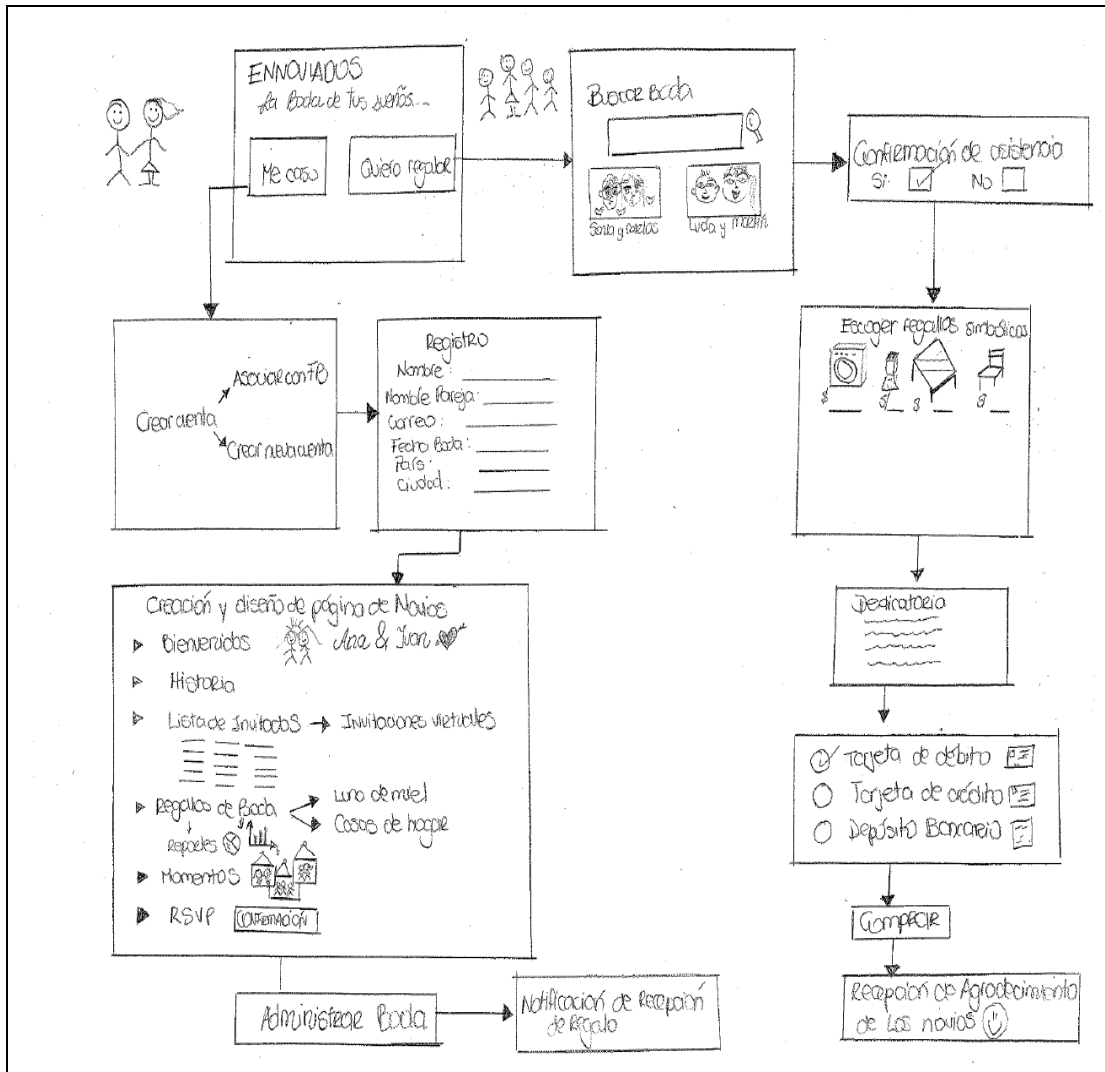 ENNOVIADOS
La Boda de tus sueños...
Me caso
Quiero regalar
Buscar Boda
Sonia y Carlos
Lucía y Martín
Confirmación de asistencia
Si
No
Crear cuenta
Asociar con FB
Crear nueva cuenta
Registro
Nombre:
Nombre Pareja:
Correo:
Fecha Boda:
País:
Ciudad:
Escoger regalos simbólicos
$ $ $ $
Creación y diseño de página de Novios
Bienvenidos Ana & Juan
Historia
Lista de Invitados → Invitaciones virtuales
Regalos de Boda
Luna de miel
Cosas de hogar
Reportes
Momentos
RSVP CONFIRMACIÓN
Administrar Boda
Notificación de Recepción
de Regalo
Dedicatoria
Tarjeta de débito
Tarjeta de crédito
Depósito Bancario
Comprar
Recepción de Agradecimiento
de Los novios